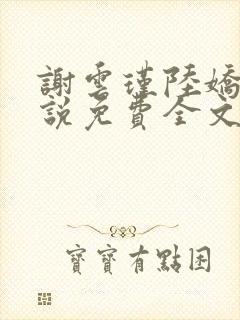 謝雲瑾陸嬌
說免費全文
寶寶有點困